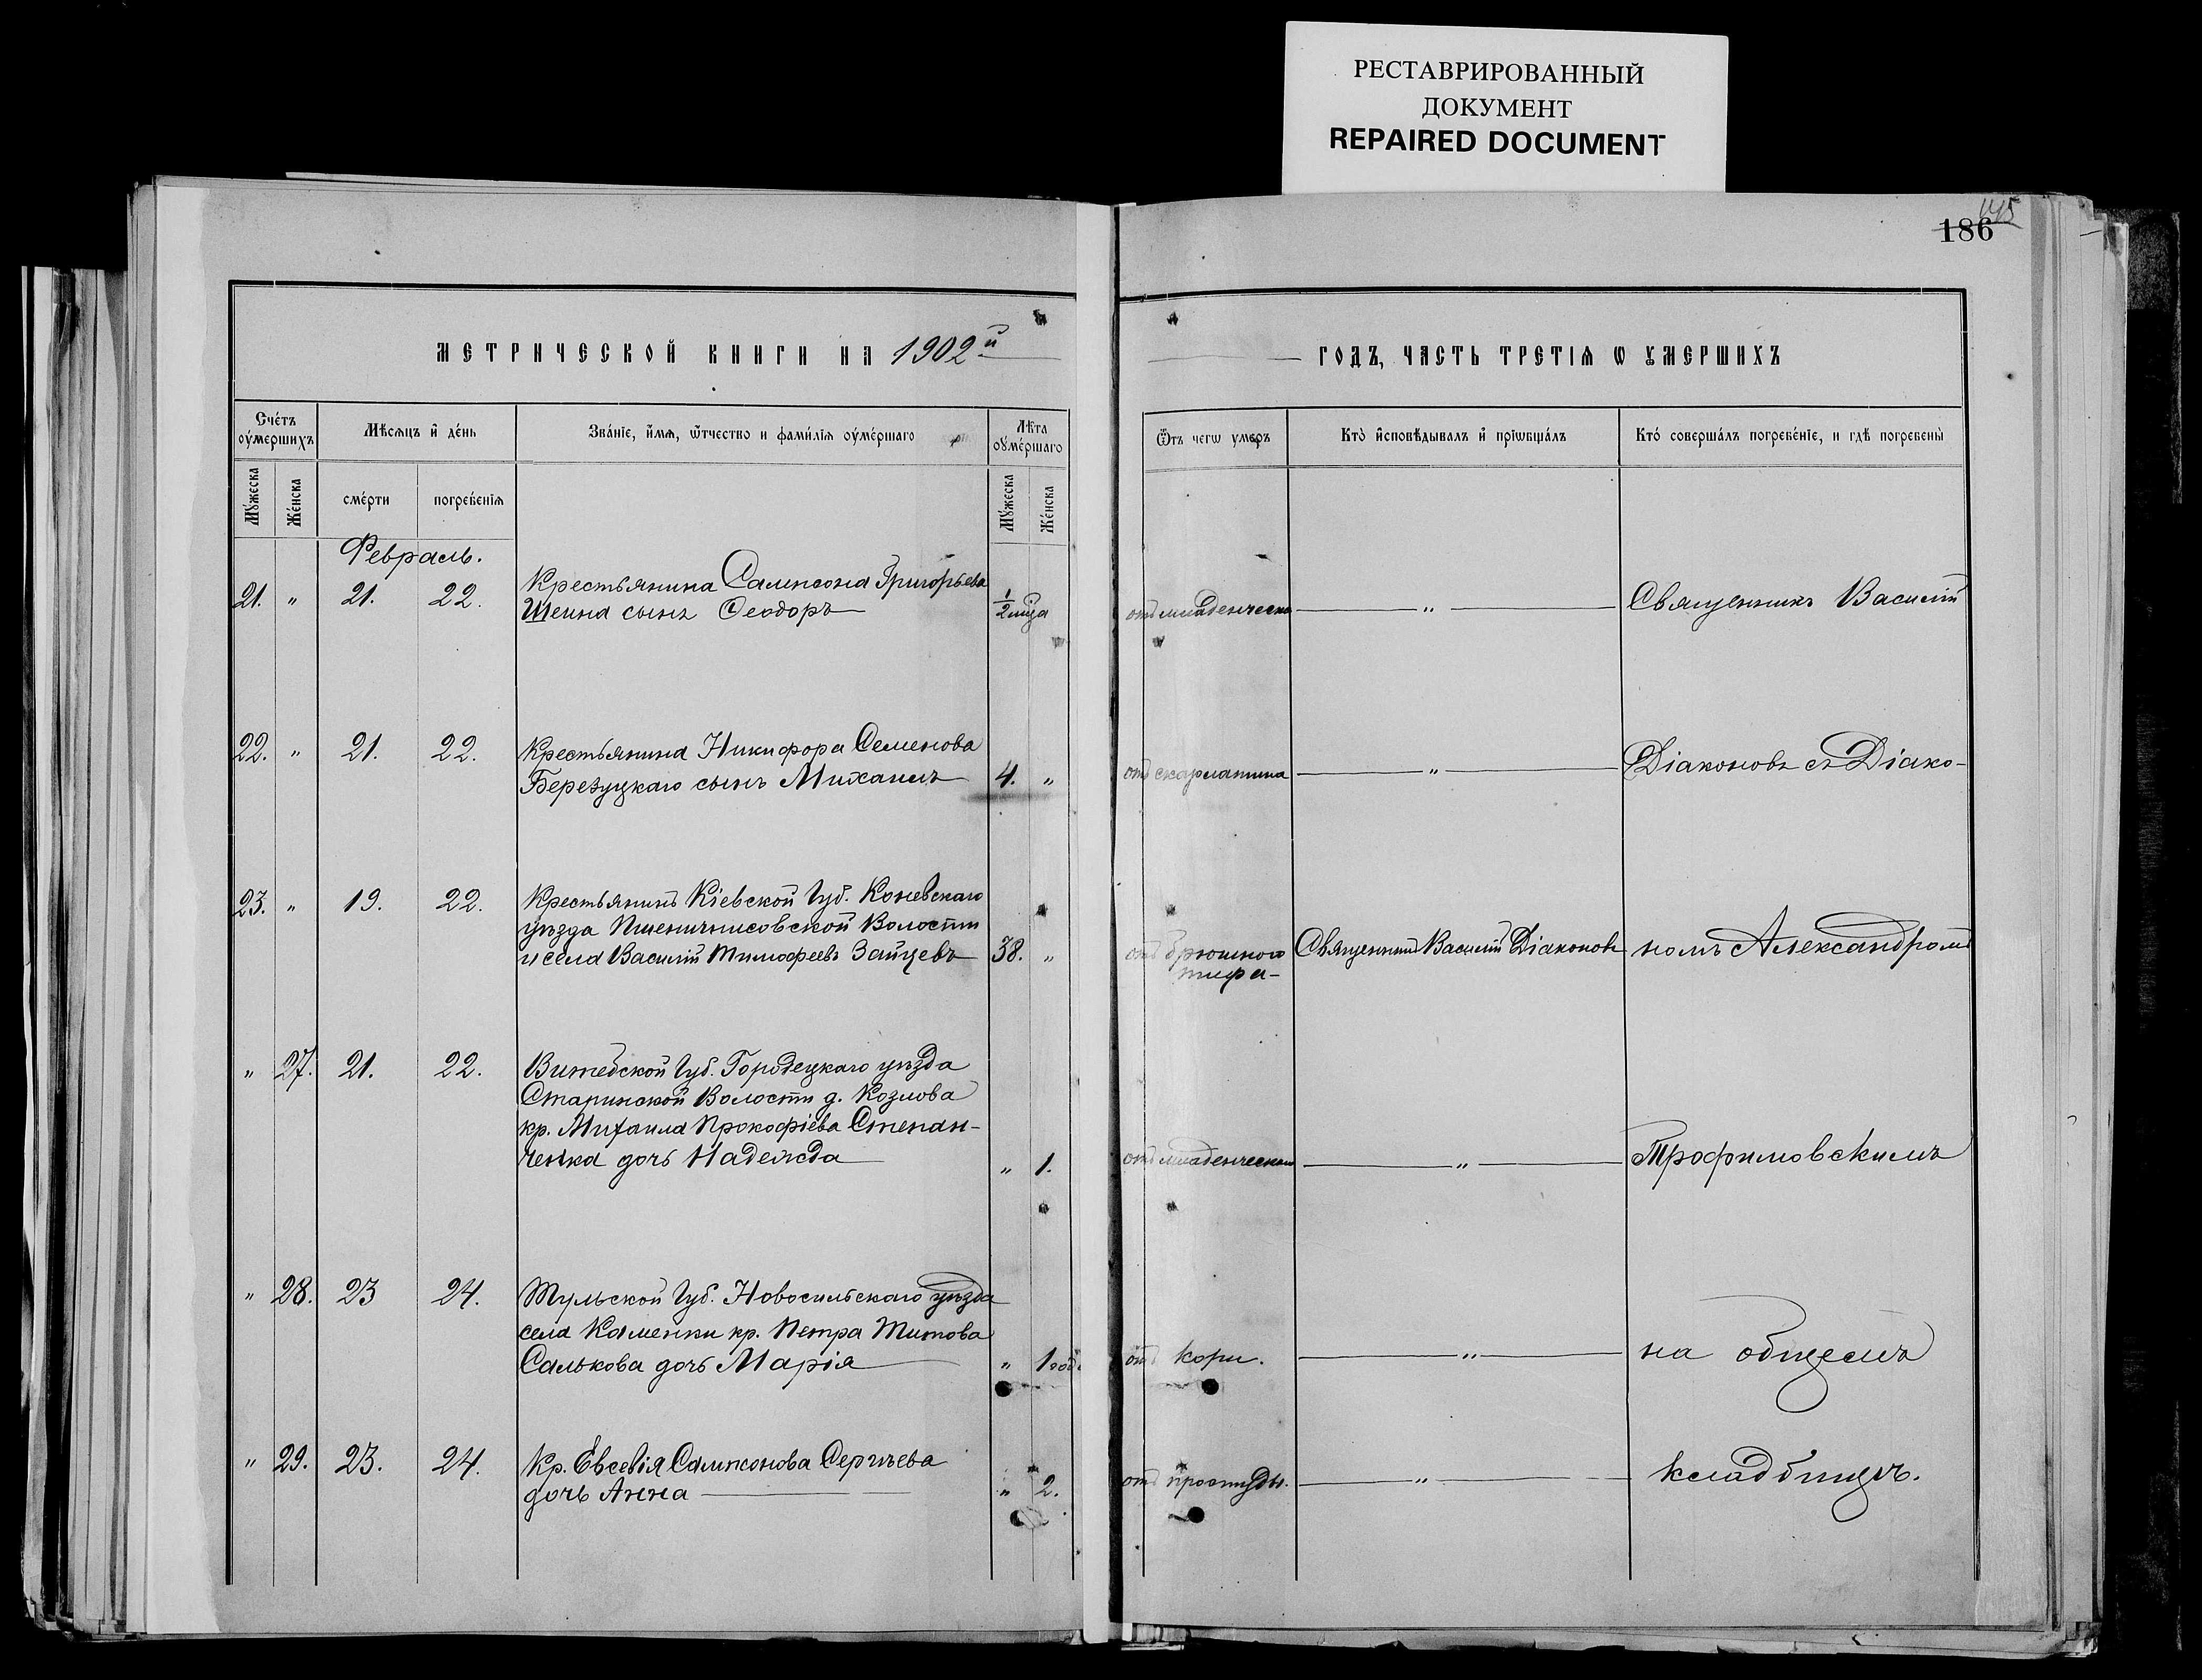 РЕСТАВРИРОВАННЫЙ
ДОКУМЕНТ
REPAIRED DOCUMENT
186
МЕТРИЧЕСКОЙ КНИГИ НА 1902й
ГОДЪ, ЧАСТЬ ТРЕТІѦ Ѡ ОУМЕРШИХЪ
Сче́тъ оу҆ме́ршихъ
Мѣ́сѧцъ и҆ де́нь
Зва́нїе, и҆́мѧ, ѿтчество и фами́лїѧ оу҆ме́ршаго
Лѣ́та оу҆ме́ршаго
Ѿ чегѡ умеръ
Кто̀ и҆сповѣ́дывалъ и҆ прїѡбща́лъ
Кто́ соверша́лъ погребе́нїе, и гдѣ̀ погребены̀
Мꙋ́жеска
Же́нска
сме́рти
погребе́нїѧ
Мꙋ́жеска
Же́нска
Февраль.
21. „ 21. 22. Крестьянина Сампсона Григорьева
Шеина сынъ Ѳеодоръ ½ мца отъ младенческ. „ Священникъ Василій
22. „ 21. 22. Крестьянина Никифора Семенова
Березуцкаго сынъ Михаилъ 4. „ отъ скарлатина „ Діаконовъ съ Діако-
23. „ 19. 22. Крестьянинъ Кіевской Губ. Коневскаго
уѣзда Пшеничниковской Волости
и села Василій Тимофеевъ Зайцевъ 38. „ отъ брюшного Священникъ Василій Діаконовъ номъ Александромъ
тифа
„ 27. 21. 22. Витебской Губ. Городецкаго уѣзда
Старинской Волости д. Козлова
кр. Михаила Прокофіева Степан-
ченка дочь Надежда „ 1. отъ младенческой „ Трофимовскимъ
„ 28. 23 24. Тульской Губ. Новосильскаго уѣзда
села Каменки кр. Петра Титова
Салькова дочь Марія „ 1 год. отъ кори. „ на общемъ
„ 29. 23. 24. Кр. Евсевія Сампсонова Сергѣева
дочь Анна „ 2. отъ простуды. „ кладбищѣ.